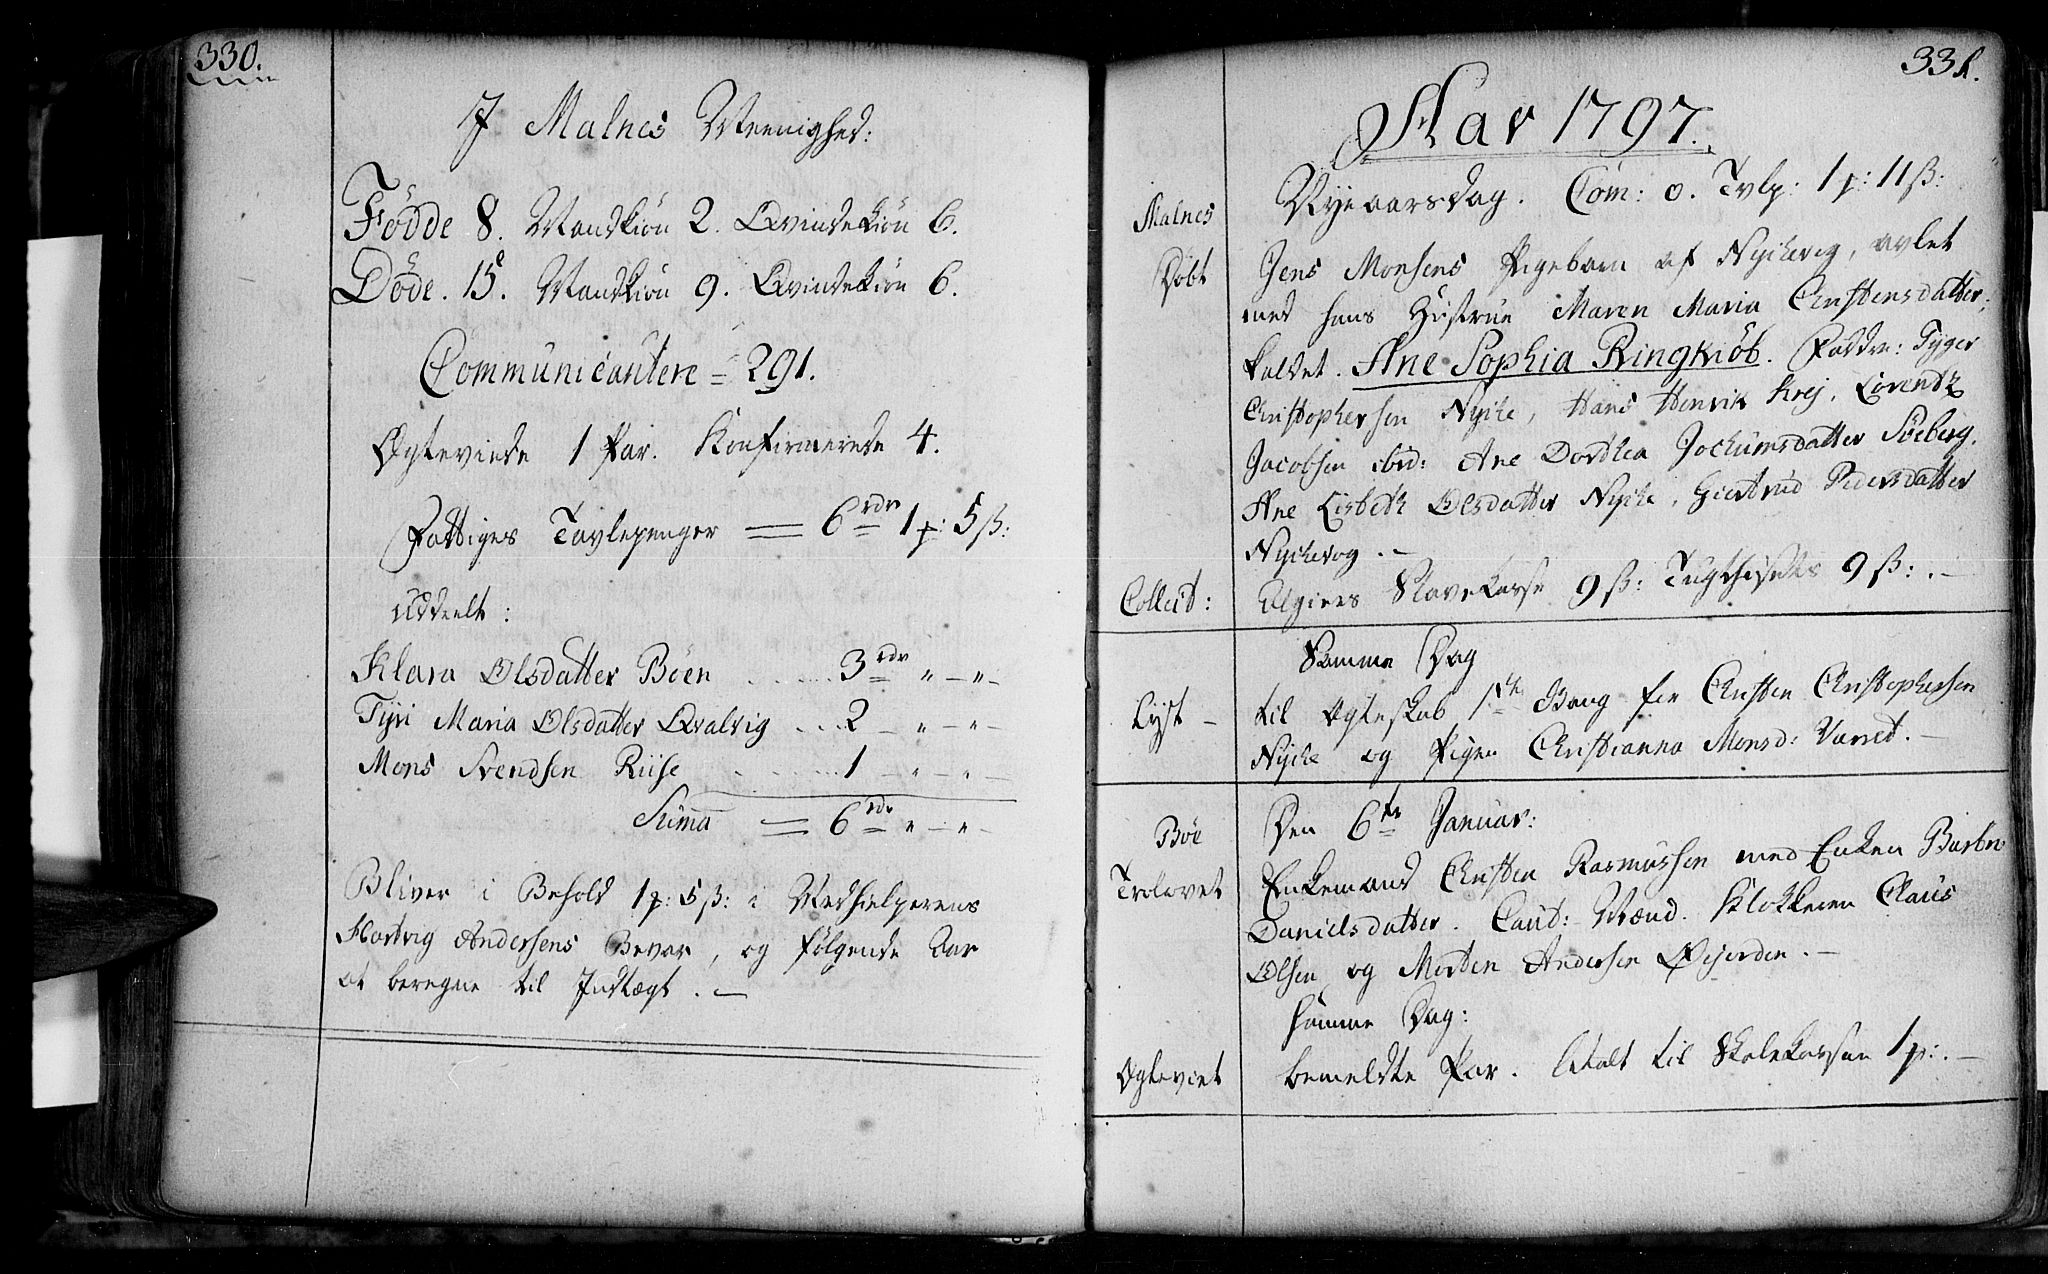 330.
I Malnes Menighed:
Fødde 8. Mandkiön 2. Qvindekiön 6.
Døde. 15. Mandkiön 9. Qvindekiön 6.
Communicantere = 291.
Ægteviede 1 Par. Konfirmerede 4.
Fattiges Tavlepenger = 6 rdr 1 p: 5 ß:
Uddeelt:
Klara Olsdatter Böen ..... 3 rdr " — " —
Tyri Maria Olsdatter Qvalvig ... 2 — " — " —
Mons Svendsen Riise ...... 1 — " — " —
Suma = 6 rdr " — " —
Bliver i Behold 1 p: 5 ß: i Medhielperens
Hartvig Andersens Bevar, og følgende Aar
at beregne til Indtægt. —
331.
Aar 1797.
Nyeaarsdag. Com: 0. Tvlp: 1 p: 11 ß:
Malnes
Døbt
Jens Monsens Pigebarn af Nyckvog, avlet
med hans Hustrue Maren Maria Christensdatter,
kaldet. Ane Sophia Ringkiöb. Faddre: Tyger
Christophersen Nycke, Hans Henrik Krej, Lorentz
Jacobsen ibid: Ane Dorthea Jochumsdatter Söeberg,
Ane Lisbeth Olsdatter Nycke, Giertrud Pedersdatter
Nyckvog. —
Collect: Algiers Slavekasse 9 ß: Tugthuset 9 ß: . —
Samme Dag
Lyst — til Ægteskab 1ste Gang for Christen Christophersen
Nycke og Pigen Christianna Monsd: Varret. —
Böe
Den 6te Januar:
Trolovet Enkemand Christen Rasmussen med Enken Barbro
Danielsdatter. Caut: Mænd. Klokkeren Claus
Olsen og Morten Andersen Øejorden. —
samme Dag:
Ægteviet bemeldte Par. Betalt til Skolekassen 1 p: . —